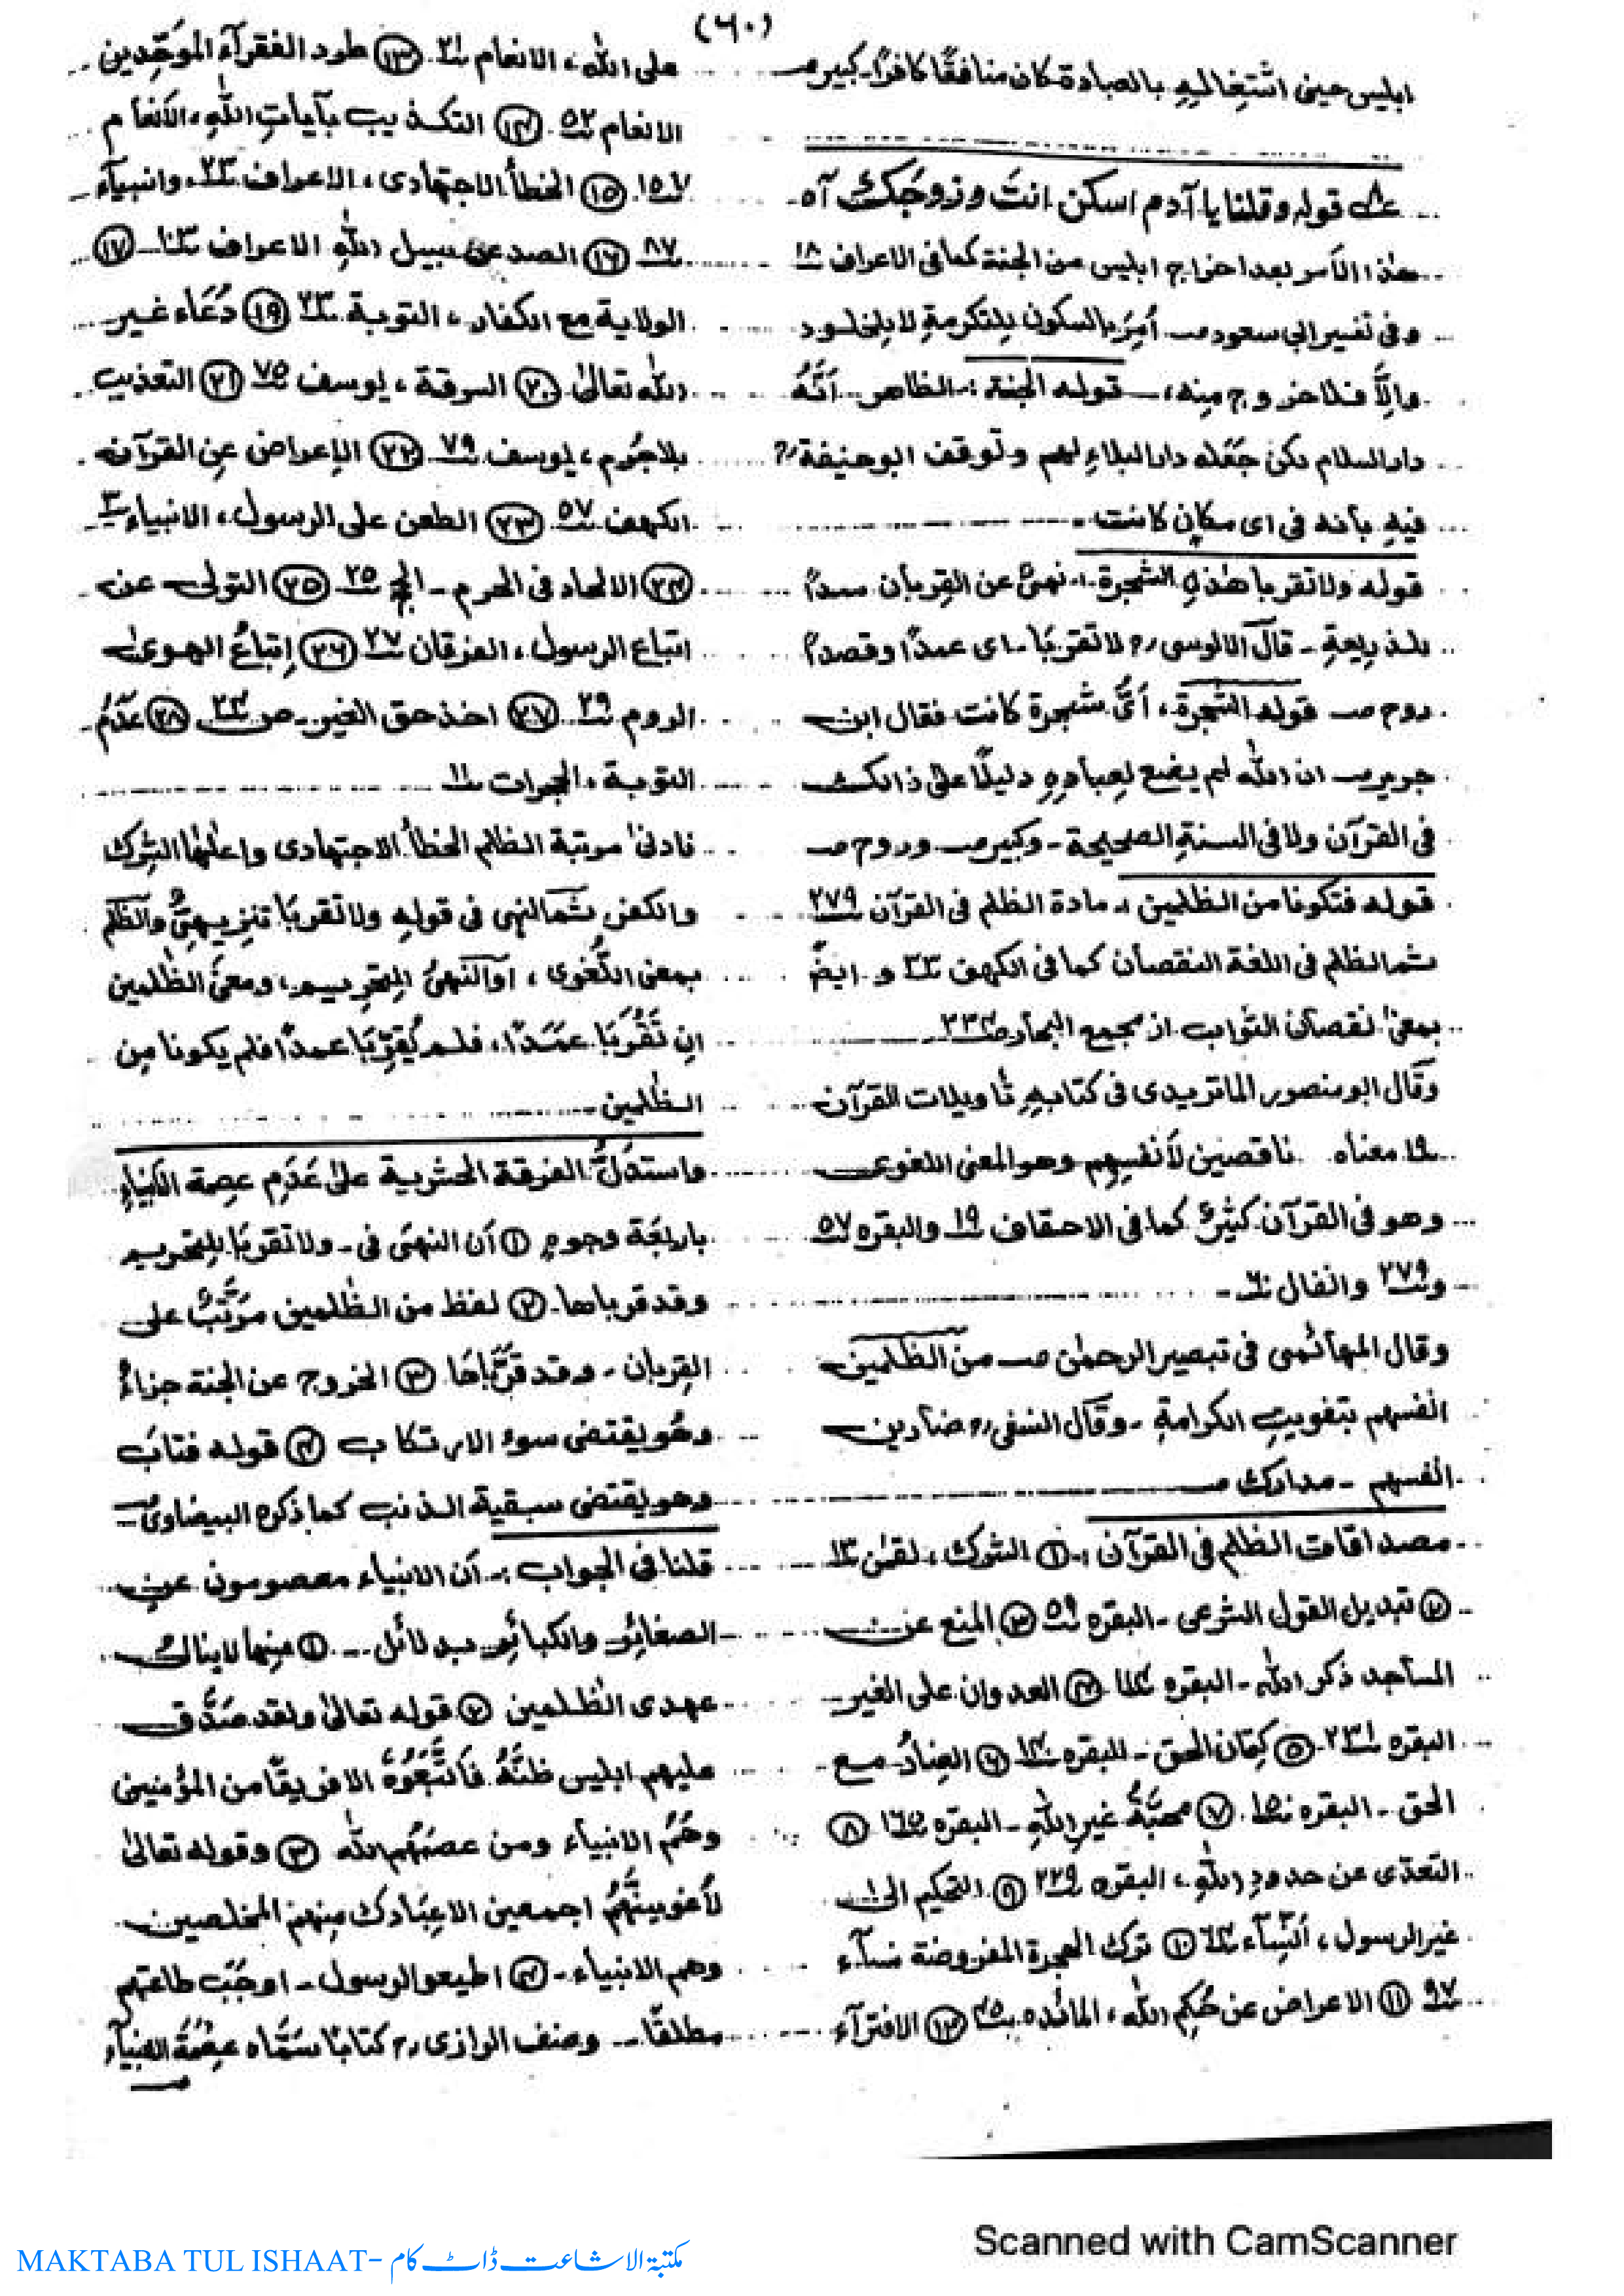 (٦٠)
ابليس حين اشتغاله بالعبادة كان منافقًا كافرًا۔ كبير صـ
قوله وقلنا يا آدم اسكن انت وزوجك آه
هذا الأمر بعد اخراج ابليس من الجنة كما فى الاعراف ١٨
وفى تفسير ابى سعود صـ أمِرَ بالسكون للتكرمةِ لا للخلود
والَّا فلا خروج منه، قوله الجنة :۔ الظاهر انَّهُ
دار السلام لكن جعله دار البلاء لهم وتوقف ابوحنيفة رح
فيه بأنه فى اى مكان كانت
قوله ولا تقربا هٰذه الشجرة :۔ نهىٌ عن القربان سدًا
للذريعةِ ۔ قال الالوسى رح لا تقربا ۔ اى عمدًا وقصدًا
روح صـ قوله الشجرة، اَىُّ شجرة كانت فقال ابن
جرير صـ ان الله لم يضع لعبادهِ دليلًا على ذالك
فى القرآن ولا فى السنة الصحيحة ۔ وكبير صـ وروح صـ
قوله فتكونا من الظلمين :۔ مادة الظلم فى القرآن ٢٧٩
ثم الظلم فى اللغة النقصان كما فى الكهف ٣٣ و ايضً
بمعنى نقصان الثواب از مجمع البحار صـ
وقال ابو منصور الماتريدى فى كتابهِ تأويلات القرآن
١٩ معناه ناقصين لأنفسهم وهو المعنى اللغوى
وهو فى القرآن كثيرٌ كما فى الاحقاف ١٩ والبقره ٥٧
و ٢٧٩ وانفال ٦٠
وقال المهائمى فى تبصير الرحمٰن صـ من الظلمين
انفسهم بتفويت الكرامةِ ۔ وقال النسفى رح ضارين
انفسهم ۔ مدارك صـ
مصداقات الظلم فى القرآن :۔ ① الشرك، لقمٰن ١٣
② تبديل القول الشرعى ۔ البقره ٥٩ ③ المنع عن
المساجد ذكر الله ۔ البقره ١١٤ ④ العدوان على الغير
البقره ٢٣١ ⑤ كتمان الحق ۔ البقره ١٤٠ ⑥ العناد مع
الحق ۔ البقره ١٥٠ ⑦ محبَّةُ غير اللهِ ۔ البقره ١٦٥ ⑧
التعدّى عن حدود اللهِ، البقره ٢٢٩ ⑨ التحكيم الى
غير الرسول، النسآء ٦٤ ⑩ ترك الهجرة المفروضة نسآء
٩٧ ⑪ الاعراض عن حكم الله، المائده ٤٥ ⑫ الافترآء
على الله، الانعام ٢١ ⑬ طرد الفقرآء الموحّدين
الانعام ٥٢ ⑭ التكذيب بآيات اللهِ، الأنعام
١٥٧ ⑮ الخطأ الاجتهادى، الاعراف ٢٣ وانبيآء
٨٧ ⑯ الصد عن سبيل اللهِ الاعراف ⑰
الولاية مع الكفار، التوبة ٢٣ ⑲ دُعَاء غير
الله تعالىٰ ⑳ السرقة، يوسف ٧٥ ㉑ التعذيب
بلاجُرم، يوسف ٧٩ ㉒ الإعراض عن القرآن
الكهف ٥٧ ㉓ الطعن على الرسول، الانبياء ٣
㉔ الالحاد فى الحرم ۔ الحج ٢٥ ㉕ التولى عن
اتباع الرسول، الفرقان ٢٧ ㉖ إتباعُ الهوىٰ
الروم ٢٩ ㉗ اخذ حق الغير ۔ ص ٢٤ ㉘ عَدَمُ
التوبة، الحجرات ١١
فادنىٰ مرتبة الظلم الخطأ الاجتهادى واعلٰها الشرك
والكفر ثم النهى فى قولهِ ولا تقربا تنزيهىٌّ والظلم
بمعنى اللُّغوى، اَوِ النهىُ للتحريم، ومعنى الظٰلمين
اِن تَقْرُبَا عَمَدًا، فلم يُقرِّبَا عمدًا فلم يكونا مِن
الظٰلمين
واستدَلَّ الفرقة الحشوية علىٰ عَدَمِ عِصمة الأنبياءِ
باربعَة وجوهٍ ① أن النهىَ فى ۔ ولا تقربَا للتحريم
وقد قرباها ② لفظ من الظٰلمين مرَتَّبٌ على
القِربان ۔ وقد قرَّبَاهَا ③ الخروج عن الجنة جزاءٌ
وهُو يقتضى سوء الارتكاب ④ قوله فتابَ
وهو يقتضى سبقية الذنب كما ذكره البيضاوىُ
قلنا فى الجواب :۔ أن الانبياء معصومون عن
الصغائر والكبائر بدلائل ۔ ① منها لا ينال
عهدى الظٰلمين ② قوله تعالىٰ ولقد صَدَّق
عليهم ابليس ظنَّهُ فَاتَّبَعُوْهُ الا فريقًا من المؤمنين
وهُمُ الانبيآء ومن عصَمَهُم الله ③ وقوله تعالىٰ
لأغوينَّهُمْ اجمعين الا عِبَادك مِنهم المخلصين
وهم الانبياء ۔ ④ اطيعو الرسول ۔ اوجَبَ طاعتهم
مطلقًا ۔ وصنف الرازى رح كتابًا سَمَّاه عِصْمَةُ الانبيآء
Scanned with CamScanner
MAKTABA TUL ISHAAT- مکتبۃ الاشاعت ڈاٹ کام